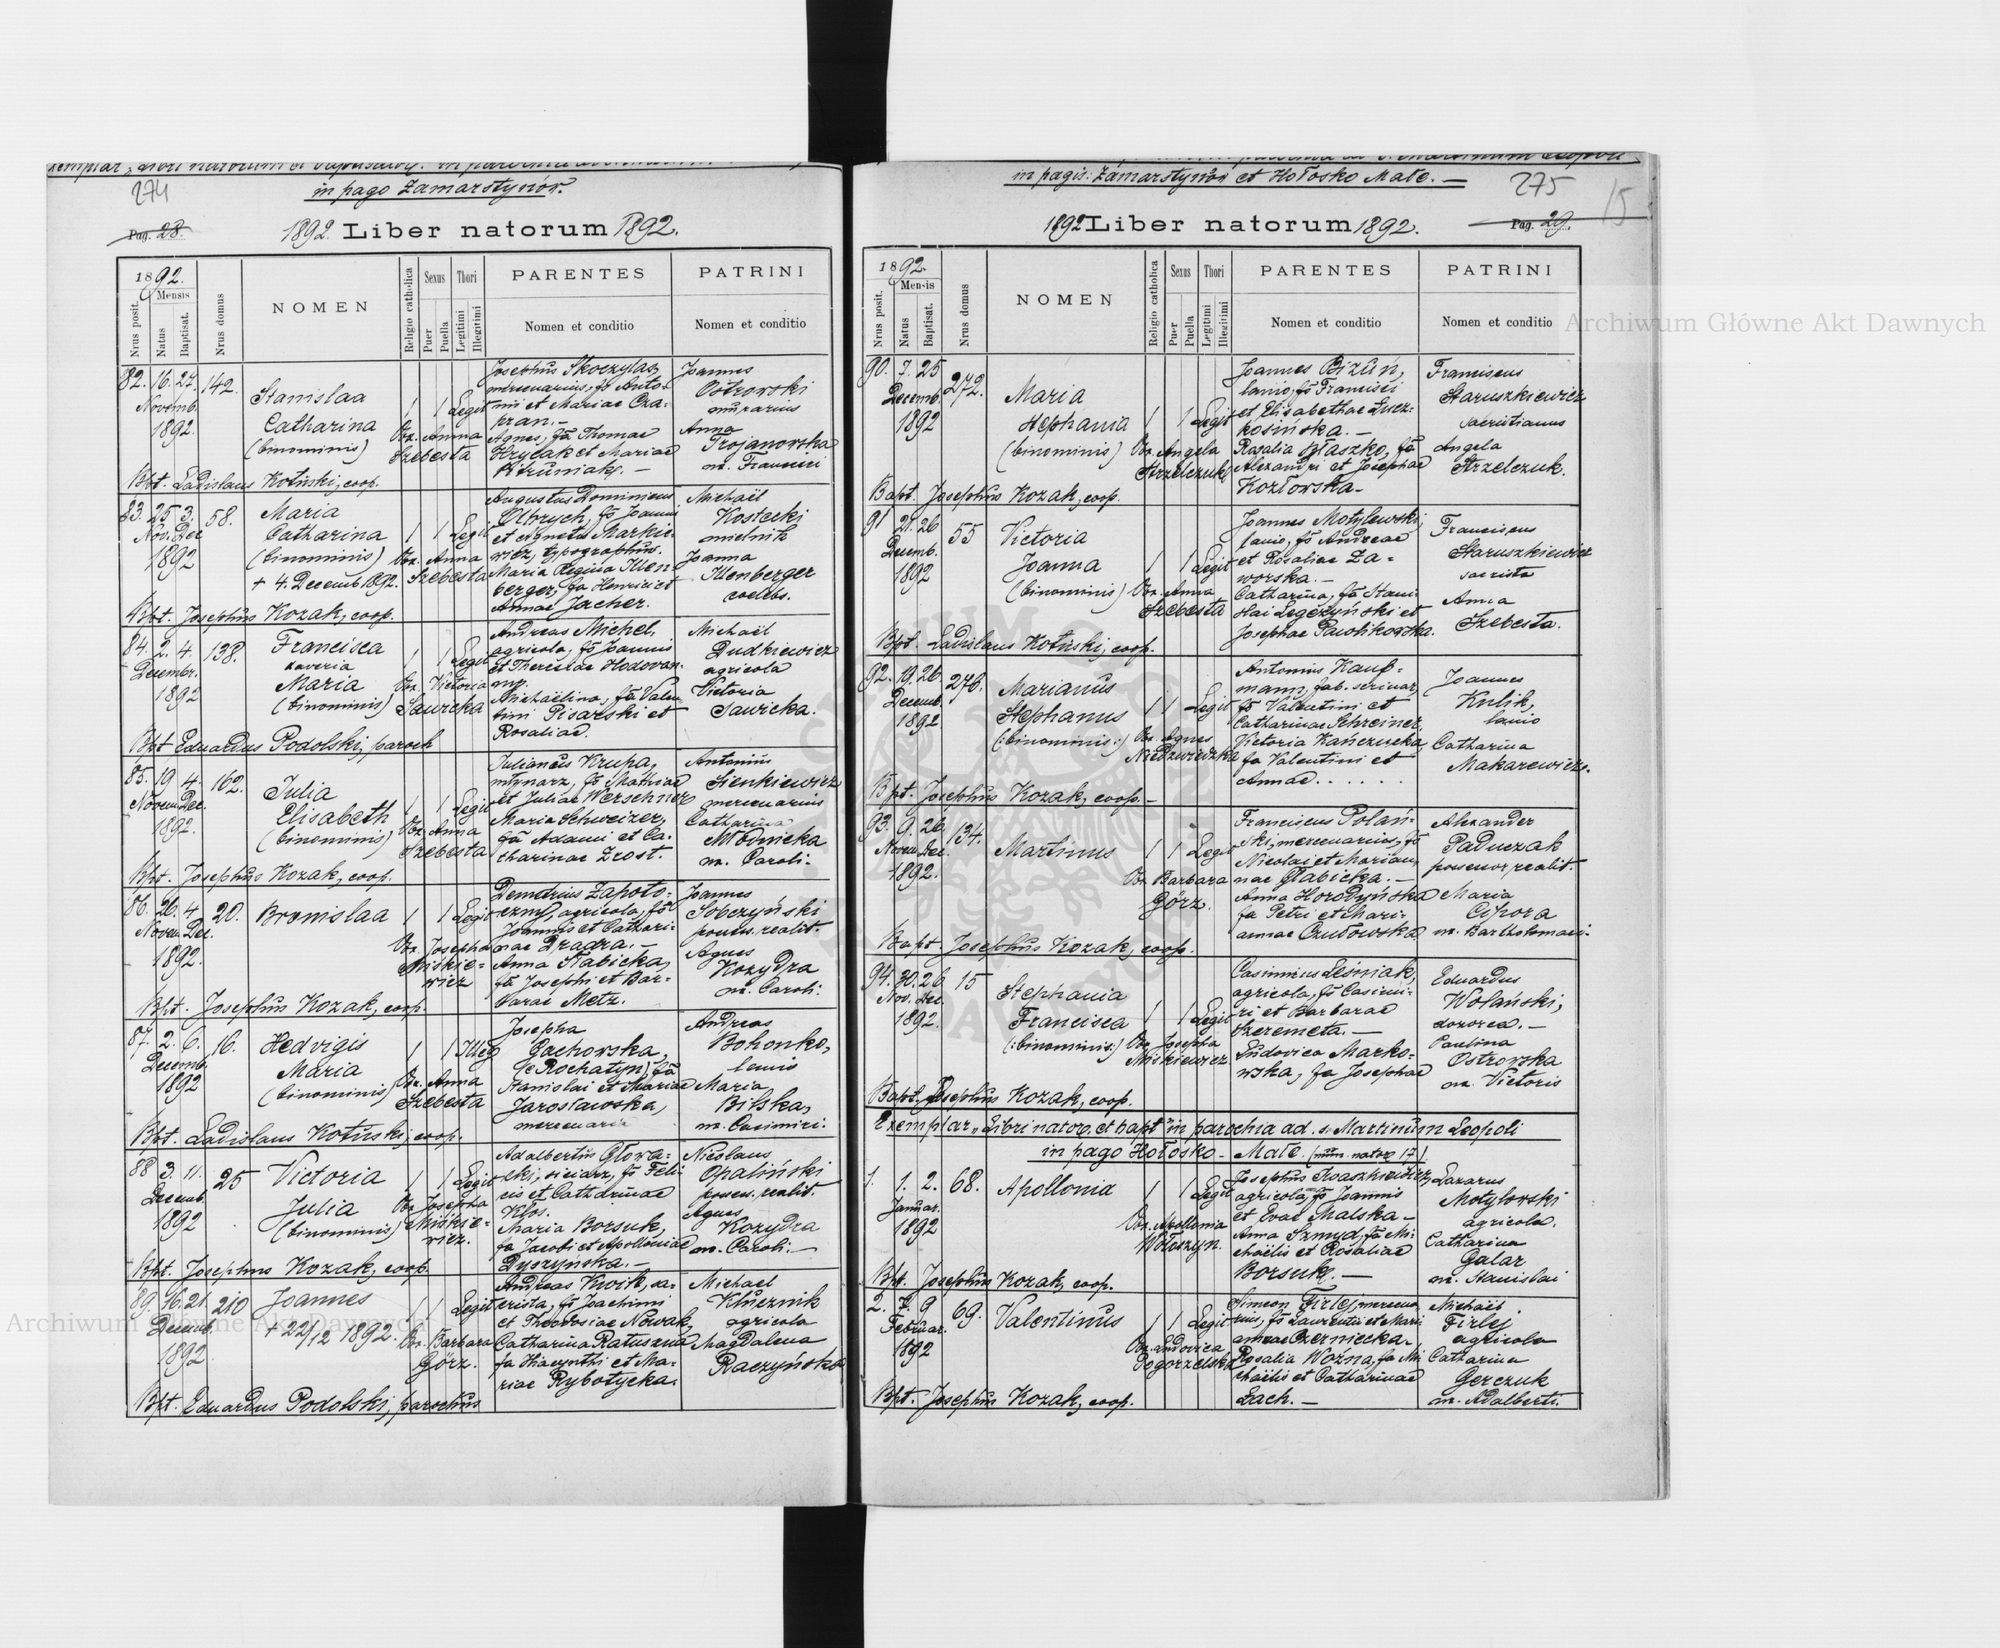 in pago Zamarstynów.
274
Pag. 28.
1892. Liber natorum 1892.
1892.
Mensis
Nrus posit.
Natus
Baptisat.
Nrus domus
NOMEN
Religio catholica
Sexus
Puer
Puella
Thori
Legitimi
Illegitimi
PARENTES
Nomen et conditio
PATRINI
Nomen et conditio
82. 16. 27. 142.
Novemb.
1892.
Stanislaa
Catharina
(binominis)
1 1 Legit
Obx. Anna
Szebesta
Josephus Skoczylas,
mercenarius, fs Anto-
nii et Mariae Cza-
pran. —
Agnes, fa Thomae
Hrycak et Mariae
Joannes
Ostrowski
murarius
Anna
Trojanowska
ux. Francisci
Bpt. Ladislaus Kotiński, coop.
83. 25. 3. 58.
Nov. Dec
1892
Maria
Catharina
(binominis)
+ 4. Decemb 1892.
1 1 Legit
Obx. Anna
Szebesta
Augustus Dominicus
Olbrych, fs Joannis
et Agnetis Markie-
wicz, typographus.
Maria Regina Illen-
berger, fa Henrici et
Annae Jacher.
Michaël
Kostecki
Joanna
Illenberger
coelebs.
Bpt. Josephus Kozak, coop.
84. 2. 4. 138.
Decembr.
1892
Francisca
xaveria
Maria
(binominis)
1 1 Legit
Obx. Victoria
Sawicka
Andreas Michel,
agricola, fs Joannis
et Theresiae Hodowan-
Michaëlina, fa Valen-
tini Pisarski et
Rosaliae.
Michaël
Dudkiewicz
agricola
Victoria
Sawicka.
Bpt Eduardus Podolski, paroch
85. 19 4. 162.
Novem Dec.
1892.
Julia
Elisabeth
(binominis)
1 1 Legit
Obx. Anna
Szebesta
Julianus Krupa,
młynarz, fs Mathiae
et Juliae Werschner
Maria Schweizer,
fa Adami et Ca-
tharinae Zrost.
Antonius
Sienkiewicz
mercenarius
Catharina
Młodnicka
ux. Caroli.
Bpt. Josephus Kozak, coop.
86. 26. 4. 20.
Novem Dec.
1892.
Bronislaa
1 1 Legit
Obx. Josepha
Miśkie-
wicz
Demetrius Zapoto-
czny, agricola, fs
Joannis et Cathari-
nae Dradra. —
Anna Słabicka,
fa Josephi et Bar-
barae Metz.
Joannes
Sobczyński
possess. realit.
Agnes
Kozydra
ux. Caroli.
Bpt. Josephus Kozak, coop.
87. 2. 6. 16.
Decemb.
1892
Hedvigis
Maria
(binominis)
1 1 Illeg
Obx. Anna
Szebesta
Josepha
Gachowska,
(e Rochatyn) fa
Stanislai et Mariae
Jarosławska,
mercenaria
Andreas
Bohonko,
lanio
Maria
Bilska,
ux. Casimiri.
Bpt. Ladislaus Kotiński, coop.
88 3. 11. 25
Decemb.
1892
Victoria
Julia
(binominis)
1 1 Legit
Obx Josepha
Miśkie-
wicz.
Adalbertus Głowa-
cki, fs Feli-
cis et Catharinae
Kłos.
Maria Borsuk,
fa Jacobi et Apolloniae
Dyszyńska. —
Nicolaus
Opaliński
possess. realit.
Agnes
Kozydra
ux. Caroli. —
Bpt. Josephus Kozak, coop
89. 16. 21. 210
Decemb.
1892
Joannes
+ 22/12 1892.
1 1 Legit
Obx. Barbara
Görz.
Andreas Kwoik, sa-
crista, fs Joachimi
et Theodosiae Nowak,
Catharina Ratuszna
fa Hiacynthi et Ma-
riae Rybotycka.
Michael
Klucznik
agricola
Magdalena
Raczyńska
Bpt. Eduardus Podolski, parochus
in pagis: Zamarstynów et Hołosko Małe. —
275
15
Pag. 29.
1892 Liber natorum 1892.
1892.
Mensis
Nrus posit.
Natus
Baptisat.
Nrus domus
NOMEN
Religio catholica
Sexus
Puer
Puella
Thori
Legitimi
Illegitimi
PARENTES
Nomen et conditio
PATRINI
Nomen et conditio
Archiwum Główne Akt Dawnych
90. 7. 25 272.
Decemb.
1892
Maria
Stephania
(binominis)
1 1 Legit
Obx Angela
Strzelczuk
Joannes Bizuń,
lanio, fs Francisci
et Elisabethae Łucz-
kosińska. —
Rosalia Błaszko, fa
Alexandri et Josephae
Kozłowska —
Franciscus
Staruszkiewicz
sacristianus
Angela
Strzelczuk.
Bapt. Josephus Kozak, coop.
91 21. 26 55
Decemb.
1892
Victoria
Joanna
(binominis)
1 1 Legit
Obx. Anna
Szebesta
Joannes Motylewski,
lanio, fs Andreae
et Rosaliae Za-
worska. —
Catharina, fa Stani-
slai Legeżyński et
Josephae Pawlikowska.
Franciscus
Staruszkiewicz
sacrista
Anna
Szebesta.
Bpt. Ladislaus Kotiński, coop.
92. 19. 26. 276.
Decemb.
1892
Marianus
Stephanus
(:binominis:)
1 1 Legit
Obx. Agnes
Niedzwiedzka
Antonius Kauf-
mann, fab. scriniar,
fs Valentini et
Catharinae Schreiner,
Victoria Kańczucka,
fa Valentini et
Annae . . . . . .
Joannes
Kulik,
lanio
Catharina
Makarewicz.
Bpt. Josephus Kozak, coop. —
93. 9. 26. 134.
Novem. Dec.
1892.
Martinus
1 1 Legit
Obx Barbara
Görz.
Franciscus Polań-
ski, mercenarius, fs
Nicolai et Marian-
nae Głabicka. —
Anna Horodyńska
fa Petri et Mari-
annae Czułowska
Alexander
Paduczak
possessor realit.
Maria
Cipora
ux. Bartholomaei.
Bapt. Josephus Kozak, coop.
94. 30. 26 15
Nov. Dec.
1892.
Stephania
Francisca
(:binominis:)
1 1 Legit
Obx Josepha
Miśkiewicz
Casimirus Leśniak,
agricola, fs Casimi-
ri et Barbarae
Szeremeta. —
Ludovica Marko-
wska, fa Josephae
Eduardus
Wolański,
dozorca. —
Paulina
Ostrowska
ux. Victoris
Bapt. Josephus Kozak, coop.
Exemplar „Libri nator. et bapt" in parochia ad. s. Martinum Leopoli
in pago Hołosko — Małe. (num. nator 17).
1. 1. 2. 68.
Januar.
1892
Apollonia
1 1 Legit
Obx. Apollonia
Wołoszyn.
Josephus Iwaszkiewicz,
agricola, fs Joannis
et Evae Malska —
Anna Szmyd, fa Mi-
chaëlis et Rosaliae
Borsuk. —
Lazarus
Motylowski
agricola.
Catharina
Galar
ux. Stanislai
Bpt. Josephus Kozak, coop.
2. 7. 9 69.
Februar.
1892
Valentinus
1 1 Legit
Obx. Ludovica
Pogorzelska
Simeon Firlej, mercena-
rius, fs Laurentii et Mari-
annae Czerniecka.
Rosalia Woźna, fa Mi-
chaëlis et Catharinae
Lach. —
Michaël
Firlej
agricola
Catharina
Gerczuk
ux. Adalberti.
Bpt. Josephus Kozak, coop.
Archiwum Główne Akt Dawnych